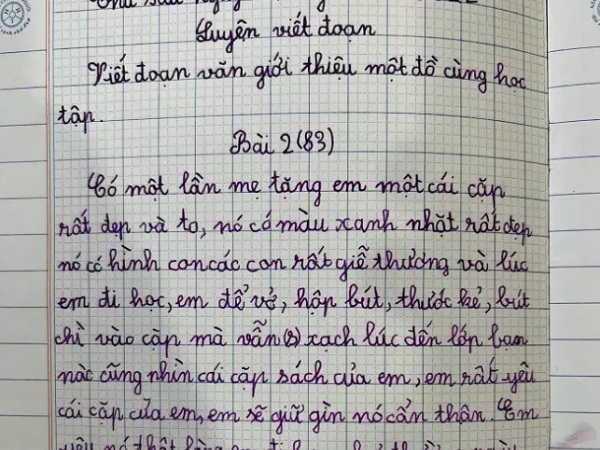 Luyện viết đoạn
Viết đoạn văn giới thiệu một đồ cùng học
tập.
Bài 2 (83)
Có một lần mẹ tặng em một cái cặp
rất đẹp và to, nó có màu xanh nhặt rất đẹp
nó có hình con các con rất giễ thương và lúc
em đi học, em để vở, hộp bút, thước kẻ, bút
chì vào cặp mà vẫn (2) xạch lúc đến lớp bạn
nàc cũng nhìn cái cặp sách của em, em rất yêu
cái cặp của em, em sẽ giữ gìn nó cẩn thân. Em